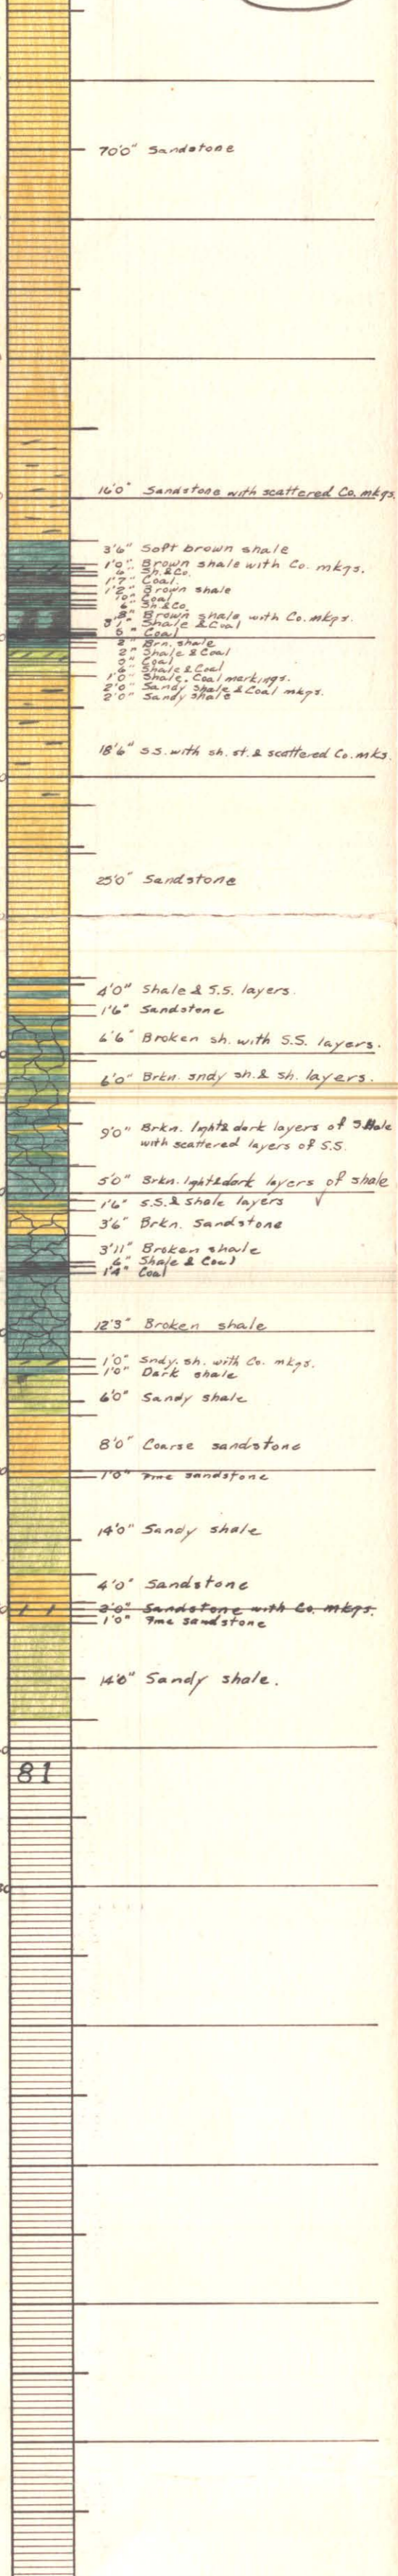 70'0" Sandstone
16'0" Sandstone with scattered Co. mkgs.
3'6" Soft brown shale
1'0" Brown shale with Co. mkgs.
6" Sh. & Co.
1'7" Coal.
1'2" Brown shale
10" Coal
6" Sh. & Co.
8" Brown shale with Co. mkgs.
3'1" Shale & Coal
5" Coal
2" Brn. shale
2" Shale & Coal
Coal
6" Shale & Coal
1'0" Shale, Coal markings.
2'0" Sandy Shale & Coal mkgs.
2'0" Sandy shale
18'6" S.S. with sh. st. & scattered Co. mks.
25'0" Sandstone
4'0" Shale & S.S. layers.
1'6" Sandstone
6'6" Broken sh. with S.S. layers.
6'0" Brkn. sndy sh. & sh. layers.
9'0" Brkn. light & dark layers of Shale
with scattered layers of S.S.
5'0" Brkn. light & dark layers of shale
1'6" S.S. & shale layers
3'6" Brkn. Sandstone
3'11" Broken shale
6" Shale & Coal
1'4" Coal
12'3" Broken shale
1'0" Sndy. sh. with Co. mkgs.
1'0" Dark shale
6'0" Sandy shale
8'0" Coarse sandstone
1'0" Fine sandstone
14'0" Sandy shale
4'0" Sandstone
2'0" Sandstone with Co. mkgs.
1'0" Fine sandstone
14'0" Sandy shale.
81